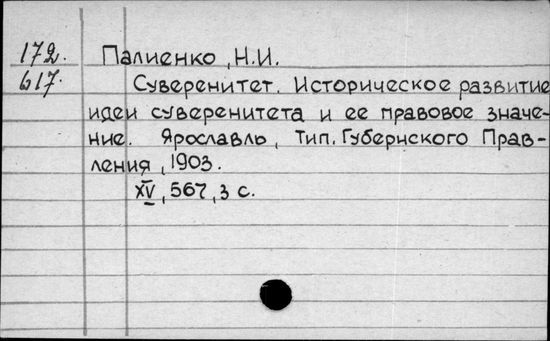 172. Палиенко, Н.И.
617. Суверенитет. Историческое развитие
идеи суверенитета и ее правовое значе-
ние. Ярославль, Тип. Губернского Прав-
ления, 1903.
XV, 567, 3 с.